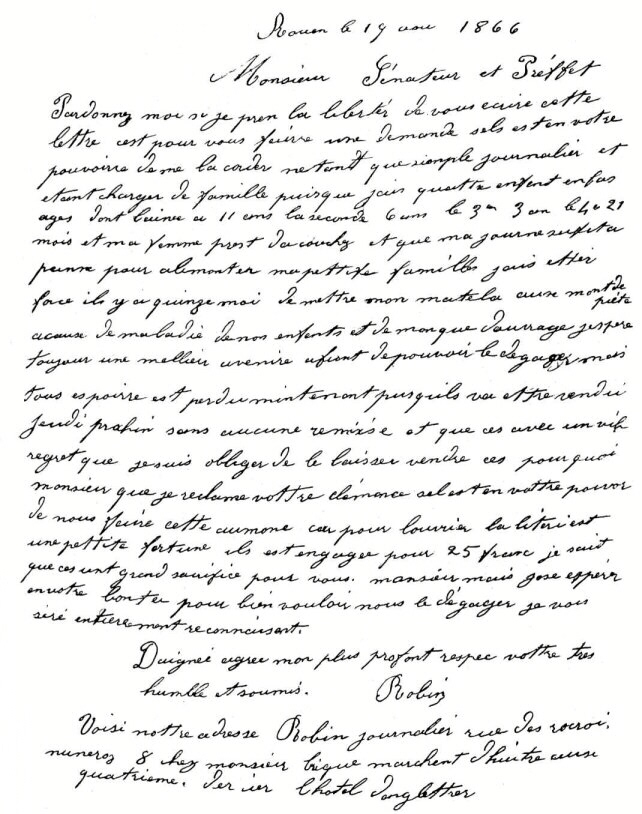 Rouen le 19 aou 1866
Monsieur Sénateur et Préffet
Pardonnez moi si je pren la liberter de vous ecrire cette
lettre cest pour vous faire une demande sels est en votre
pouvoirre de me la corder netant que simple journalier et
etant charger de famille puisque jais quatte enfent en bas
ages dont leinee a 11 ans la seconde 6 ans le 3em 3 an le 4 a 21
mois et ma femme prest da couchez et que ma journe sufit a
penne pour alimenter ma pettite familles jais etter
force ils y a quinze moi de mettre mon matela aux mont de piété
acause de maladie de nos enfents et de monque douvrage jespere
toujour une mellier avenire afient de pouvoir le dégager mais
tous espoirre est perdu mintenent pusquils va ettre vendu
jeudi prahin sans aucune remixse et que ces avec un vih
regret que je suis obliger de le laisser vendre ces pourquoi
monsieur que je reclame vottre clémence sel est en vottre pouvoir
de nous faire cette aumone car pour louvrier la literi est
une pettite fortune ils est engagee pour 25 franc je sait
que ces unt grand sacrifice pour vous. mansieur mais jose espérer
en votre bonter pour bien vouloir nous le dégager je vous
seré entierement reconnaisant.
Daignée agree mon plus profont respec vottre tres
humble et soumis. Robin
Voisi nottre adresse Robin journalier rue des rocroi.
numeroz 8 chez monsieur bique marchent dhuitre ause
quatrieme. der ier lhotel danglettrer